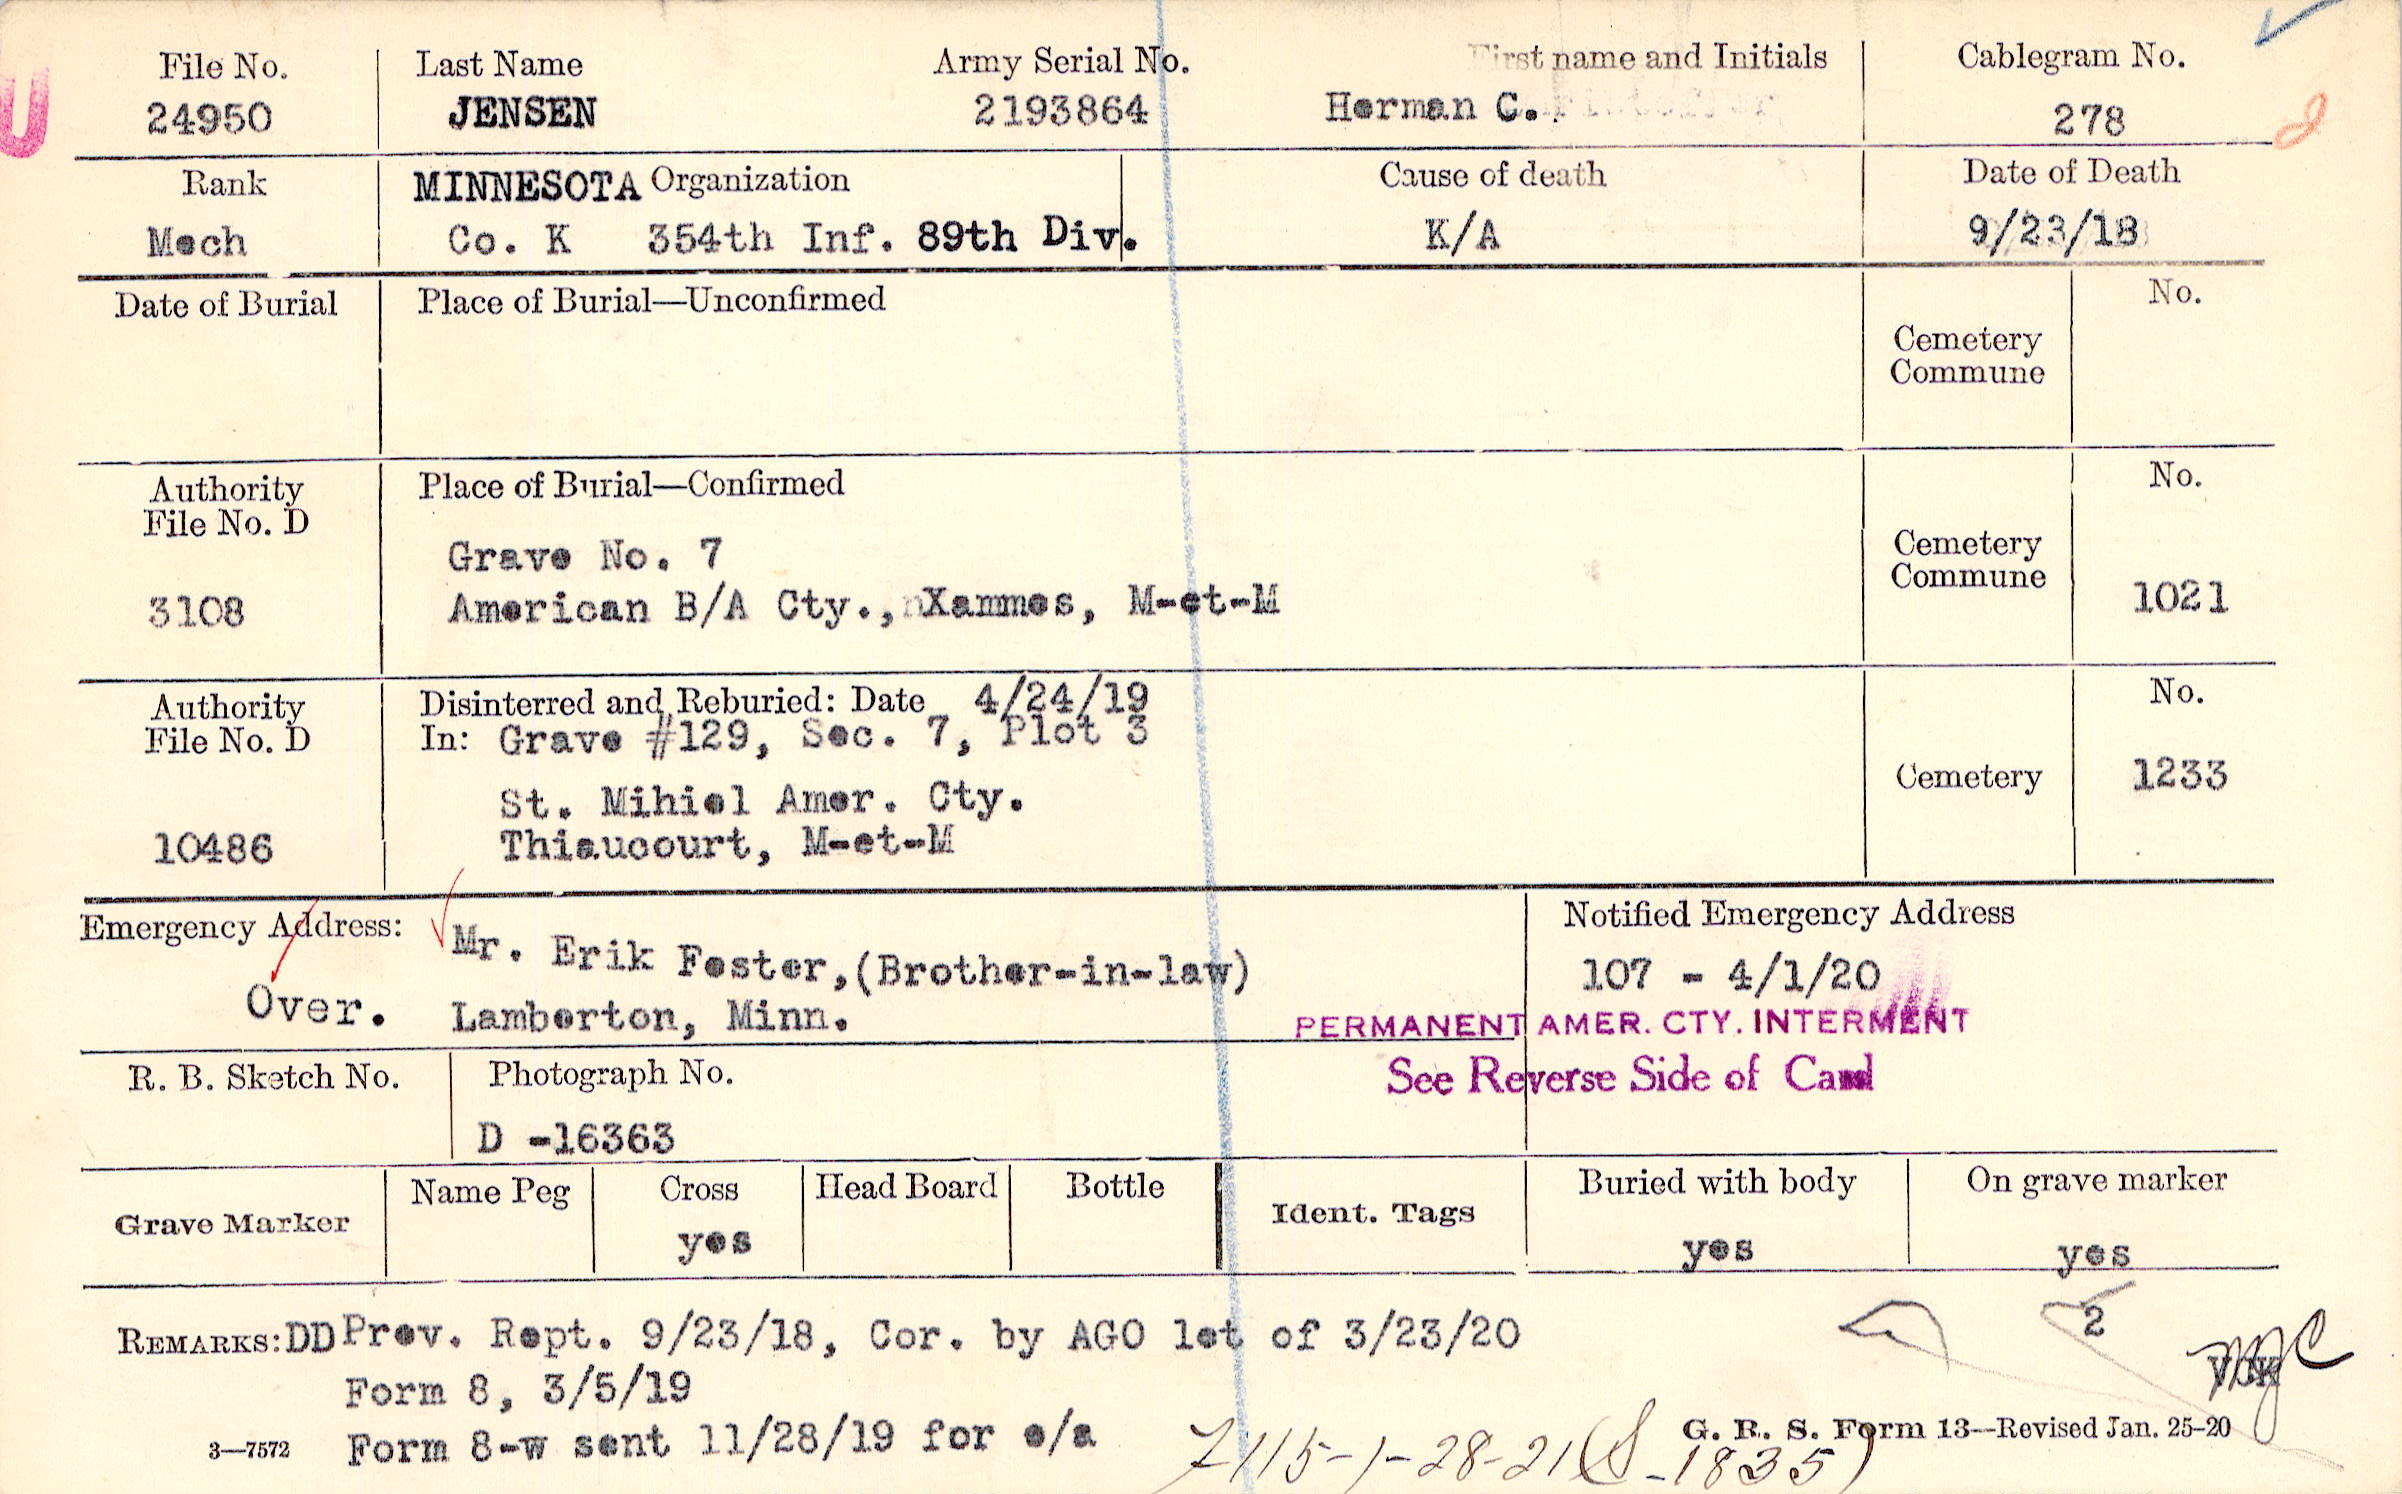 U
File No. Last Name Army Serial No. First name and Initials Cablegram No.
24950 JENSEN 2193864 Herman C. 278
Rank MINNESOTA Organization Cause of death Date of Death
Mech Co. K 354th Inf. 89th Div. K/A 9/23/18
Date of Burial Place of Burial—Unconfirmed No.
Cemetery
Commune
Authority Place of Burial—Confirmed No.
File No. D
Grave No. 7 Cemetery
Commune
3108 American B/A Cty., nXammes, M-et-M 1021
Authority Disinterred and Reburied: Date 4/24/19 No.
File No. D In: Grave #129, Sec. 7, Plot 3
Cemetery 1233
St. Mihiel Amer. Cty.
10486 Thiaucourt, M-et-M
Emergency Address: Mr. Erik Fester, (Brother-in-law) Notified Emergency Address
107 - 4/1/20
Over. Lamberton, Minn.
PERMANENT AMER. CTY. INTERMENT
See Reverse Side of Card
R. B. Sketch No. Photograph No.
D -16363
Grave Marker Name Peg Cross Head Board Bottle Ident. Tags Buried with body On grave marker
yes yes yes
REMARKS: DD Prev. Rept. 9/23/18, Cor. by AGO let of 3/23/20 2
Form 8, 3/5/19
Form 8-w sent 11/28/19 for e/a
3—7572 G. R. S. Form 13—Revised Jan. 25-20
7115-1-28-21 (S-1835)